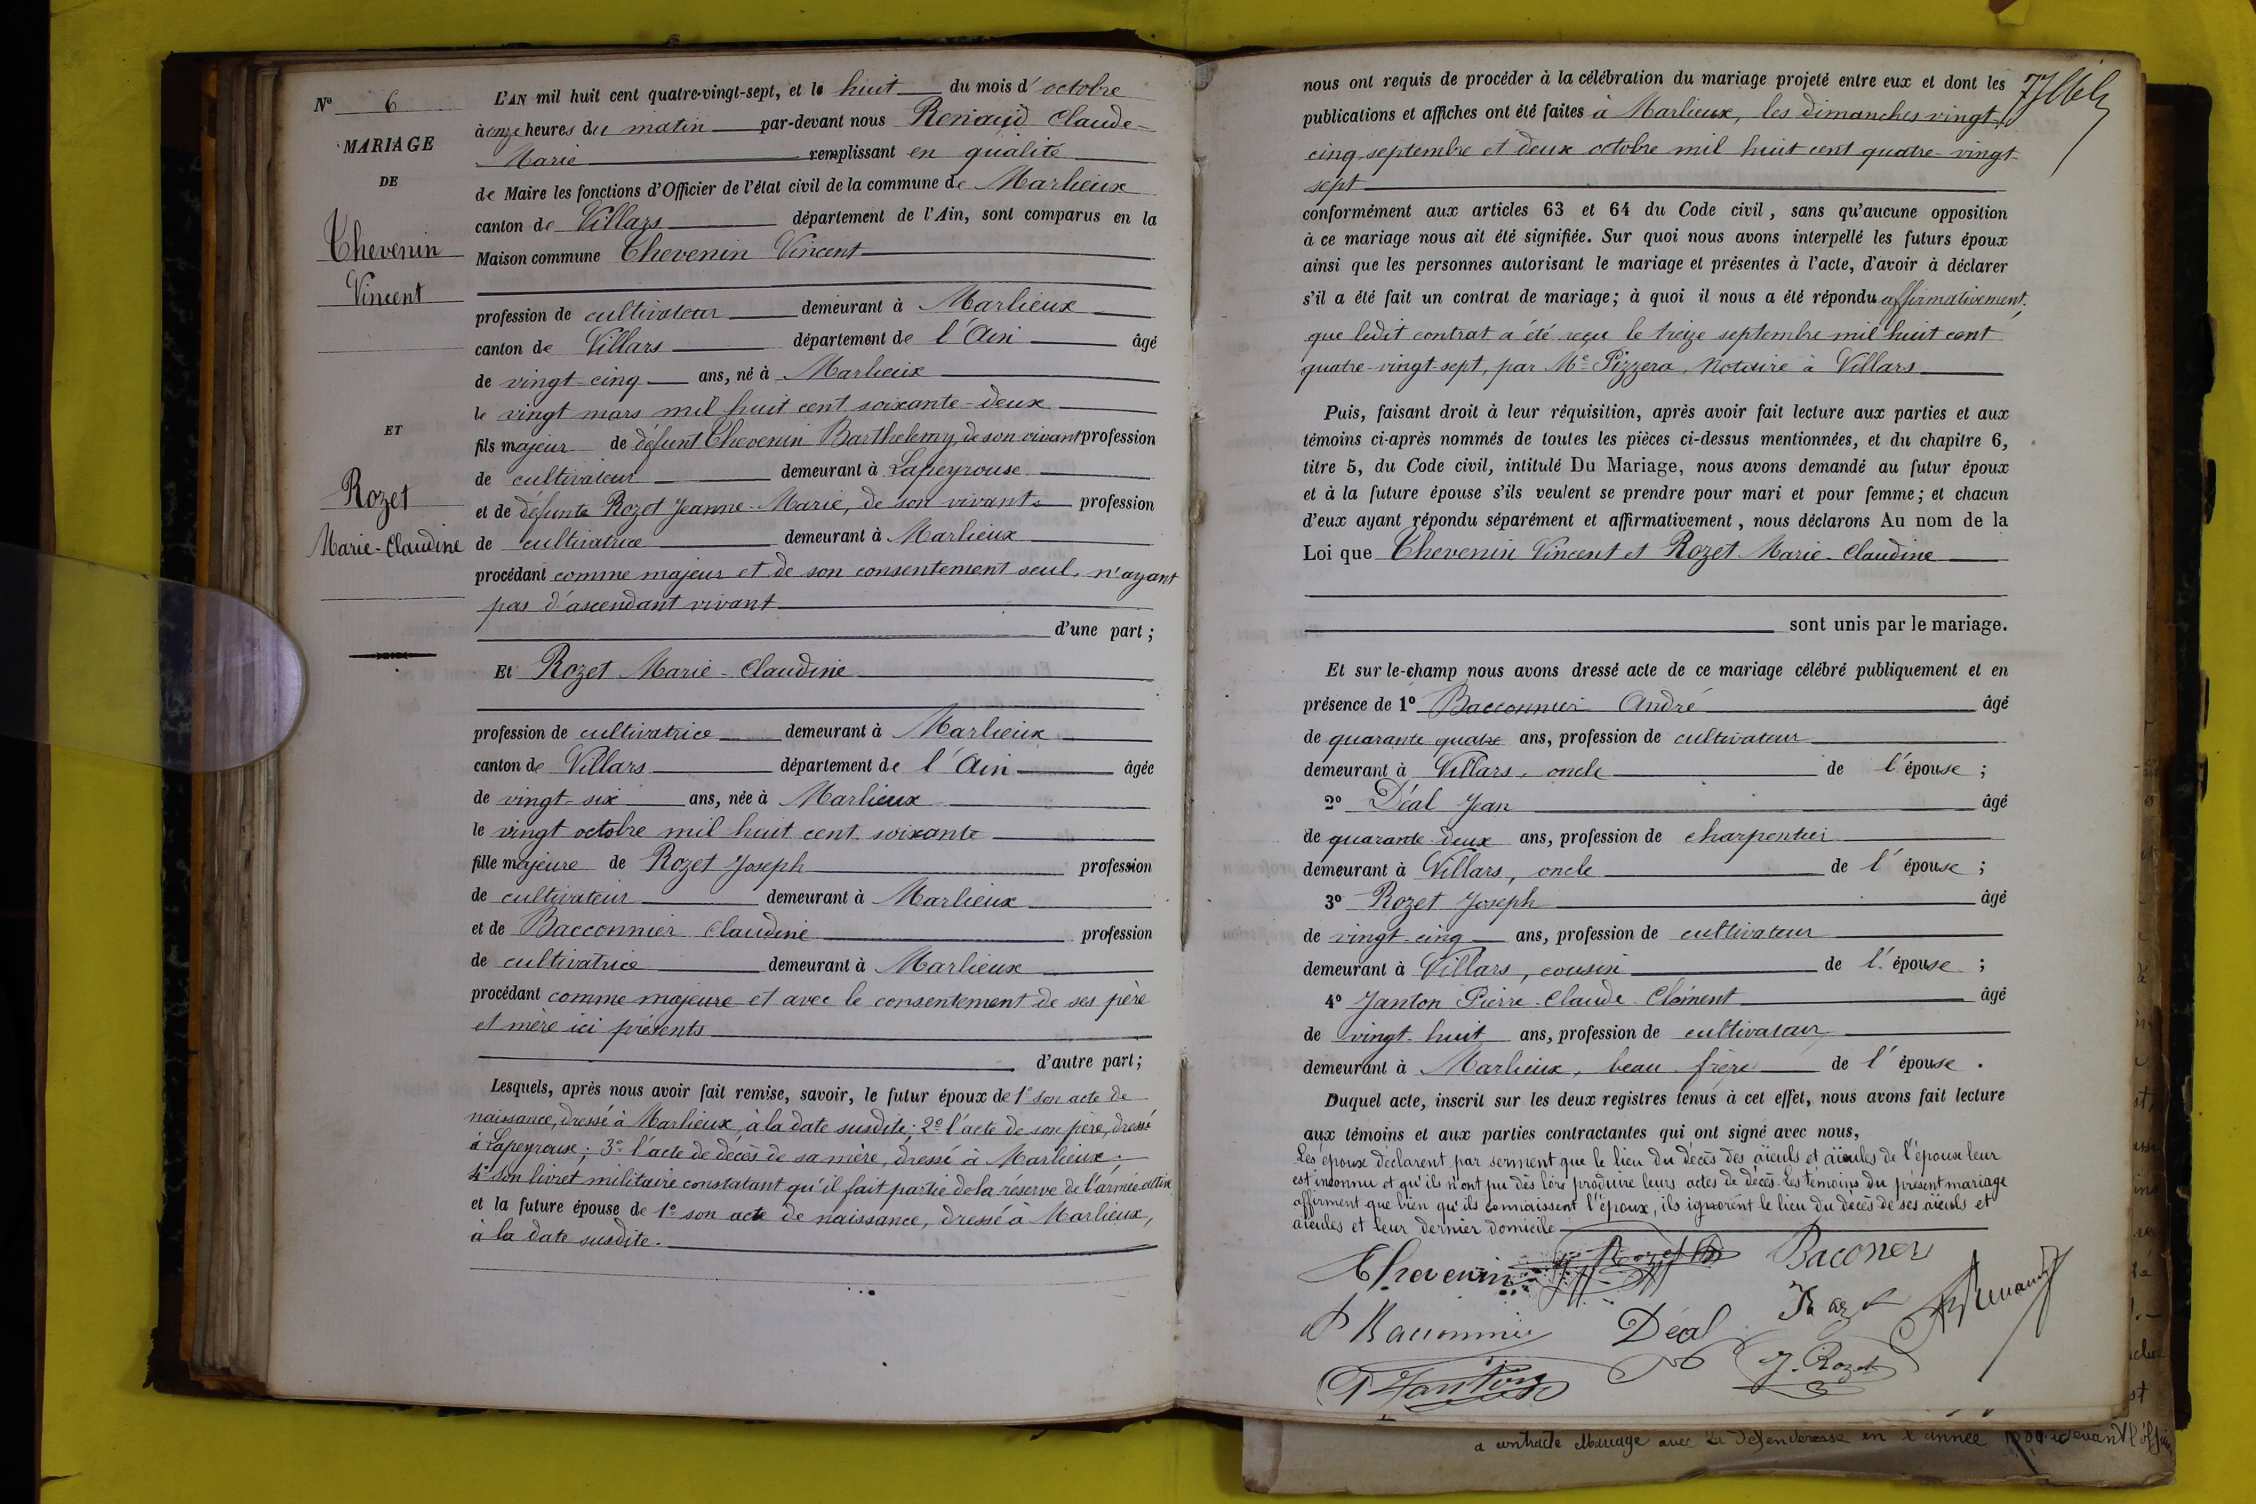 N° 6
MARIAGE
DE
Thevenin
Vincent
ET
Rozet
Marie-Claudine
L'AN mil huit cent quatre-vingt-sept, et le huit du mois d'octobre
à onze heures du matin par-devant nous Renaud Claude-
Marie remplissant en qualité
de Maire les fonctions d'Officier de l'état civil de la commune de Marlieux
canton de Villars département de l'Ain, sont comparus en la
Maison commune Thevenin Vincent
profession de cultivateur demeurant à Marlieux
canton de Villars département de l'Ain âgé
de vingt-cinq ans, né à Marlieux
le vingt mars mil huit cent soixante-deux
fils majeur de défunt Thevenin Barthelemy, de son vivant profession
de cultivateur demeurant à Lapeyrouse
et de défunte Rozet Jeanne-Marie, de son vivant profession
de cultivatrice demeurant à Marlieux
procédant comme majeur et de son consentement seul, n'ayant
pas d'ascendant vivant
d'une part ;
Et Rozet Marie-Claudine
profession de cultivatrice demeurant à Marlieux
canton de Villars département de l'Ain âgée
de vingt-six ans, née à Marlieux
le vingt octobre mil huit cent soixante
fille majeure de Rozet Joseph profession
de cultivateur demeurant à Marlieux
et de Bacconnier Claudine profession
de cultivatrice demeurant à Marlieux
procédant comme majeure et avec le consentement de ses père
et mère ici présents
d'autre part ;
Lesquels, après nous avoir fait remise, savoir, le futur époux de 1° son acte de
naissance, dressé à Marlieux, à la date susdite ; 2° l'acte de son père, dressé
à Lapeyrouse ; 3° l'acte de décès de sa mère, dressé à Marlieux ;
4° son livret militaire constatant qu'il fait partie de la réserve de l'armée active
et la future épouse de 1° son acte de naissance, dressé à Marlieux,
à la date susdite.
nous ont requis de procéder à la célébration du mariage projeté entre eux et dont les
publications et affiches ont été faites à Marlieux, les dimanches vingt-
cinq septembre et deux octobre mil huit cent quatre-vingt-
sept
conformément aux articles 63 et 64 du Code civil, sans qu'aucune opposition
à ce mariage nous ait été signifiée. Sur quoi nous avons interpellé les futurs époux
ainsi que les personnes autorisant le mariage et présentes à l'acte, d'avoir à déclarer
s'il a été fait un contrat de mariage ; à quoi il nous a été répondu affirmativement,
que ledit contrat a été reçu le treize septembre mil huit cent
quatre-vingt-sept, par Me Pizzera, Notaire à Villars
Puis, faisant droit à leur réquisition, après avoir fait lecture aux parties et aux
témoins ci-après nommés de toutes les pièces ci-dessus mentionnées, et du chapitre 6,
titre 5, du Code civil, intitulé Du Mariage, nous avons demandé au futur époux
et à la future épouse s'ils veulent se prendre pour mari et pour femme ; et chacun
d'eux ayant répondu séparément et affirmativement, nous déclarons Au nom de la
Loi que Thevenin Vincent et Rozet Marie-Claudine
sont unis par le mariage.
Et sur le-champ nous avons dressé acte de ce mariage célébré publiquement et en
présence de 1° Bacconnier André âgé
de quarante quatre ans, profession de cultivateur
demeurant à Villars, oncle de l'épouse ;
2° Déal Jean âgé
de quarante-deux ans, profession de charpentier
demeurant à Villars, oncle de l'épouse ;
3° Rozet Joseph âgé
de vingt-cinq ans, profession de cultivateur
demeurant à Villars, cousin de l'épouse ;
4° Janton Pierre-Claude-Clément âgé
de vingt-huit ans, profession de cultivateur
demeurant à Marlieux, beau-frère de l'épouse.
Duquel acte, inscrit sur les deux registres tenus à cet effet, nous avons fait lecture
aux témoins et aux parties contractantes qui ont signé avec nous,
Les époux déclarent par serment que le lieu du décès des aïeuls et aïeules de l'époux leur
est inconnu et qu'ils n'ont pu dès lors produire leurs actes de décès. Les témoins du présent mariage
affirment que bien qu'ils connaissent l'époux, ils ignorent le lieu du décès de ses aïeuls et
aïeules et leur dernier domicile
Thevenin Rozet Baconer
Bacconnier Déal Rozet Renaud
Janton J. Rozet
a contracté Mariage avec la défenderesse en l'année devant l'offi